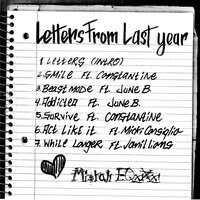 Letters From Last year
1. LETTERS (INTRO)
2. SMILE Ft. CONSTANTINE
3. Beast mode Ft. JUNE B.
4. Addicted Ft. JUNE B.
5. Survive Ft. CONSTANTINE
6. Act Like it Ft. Micki Consiglio
7. While Longer Ft. Jamillions